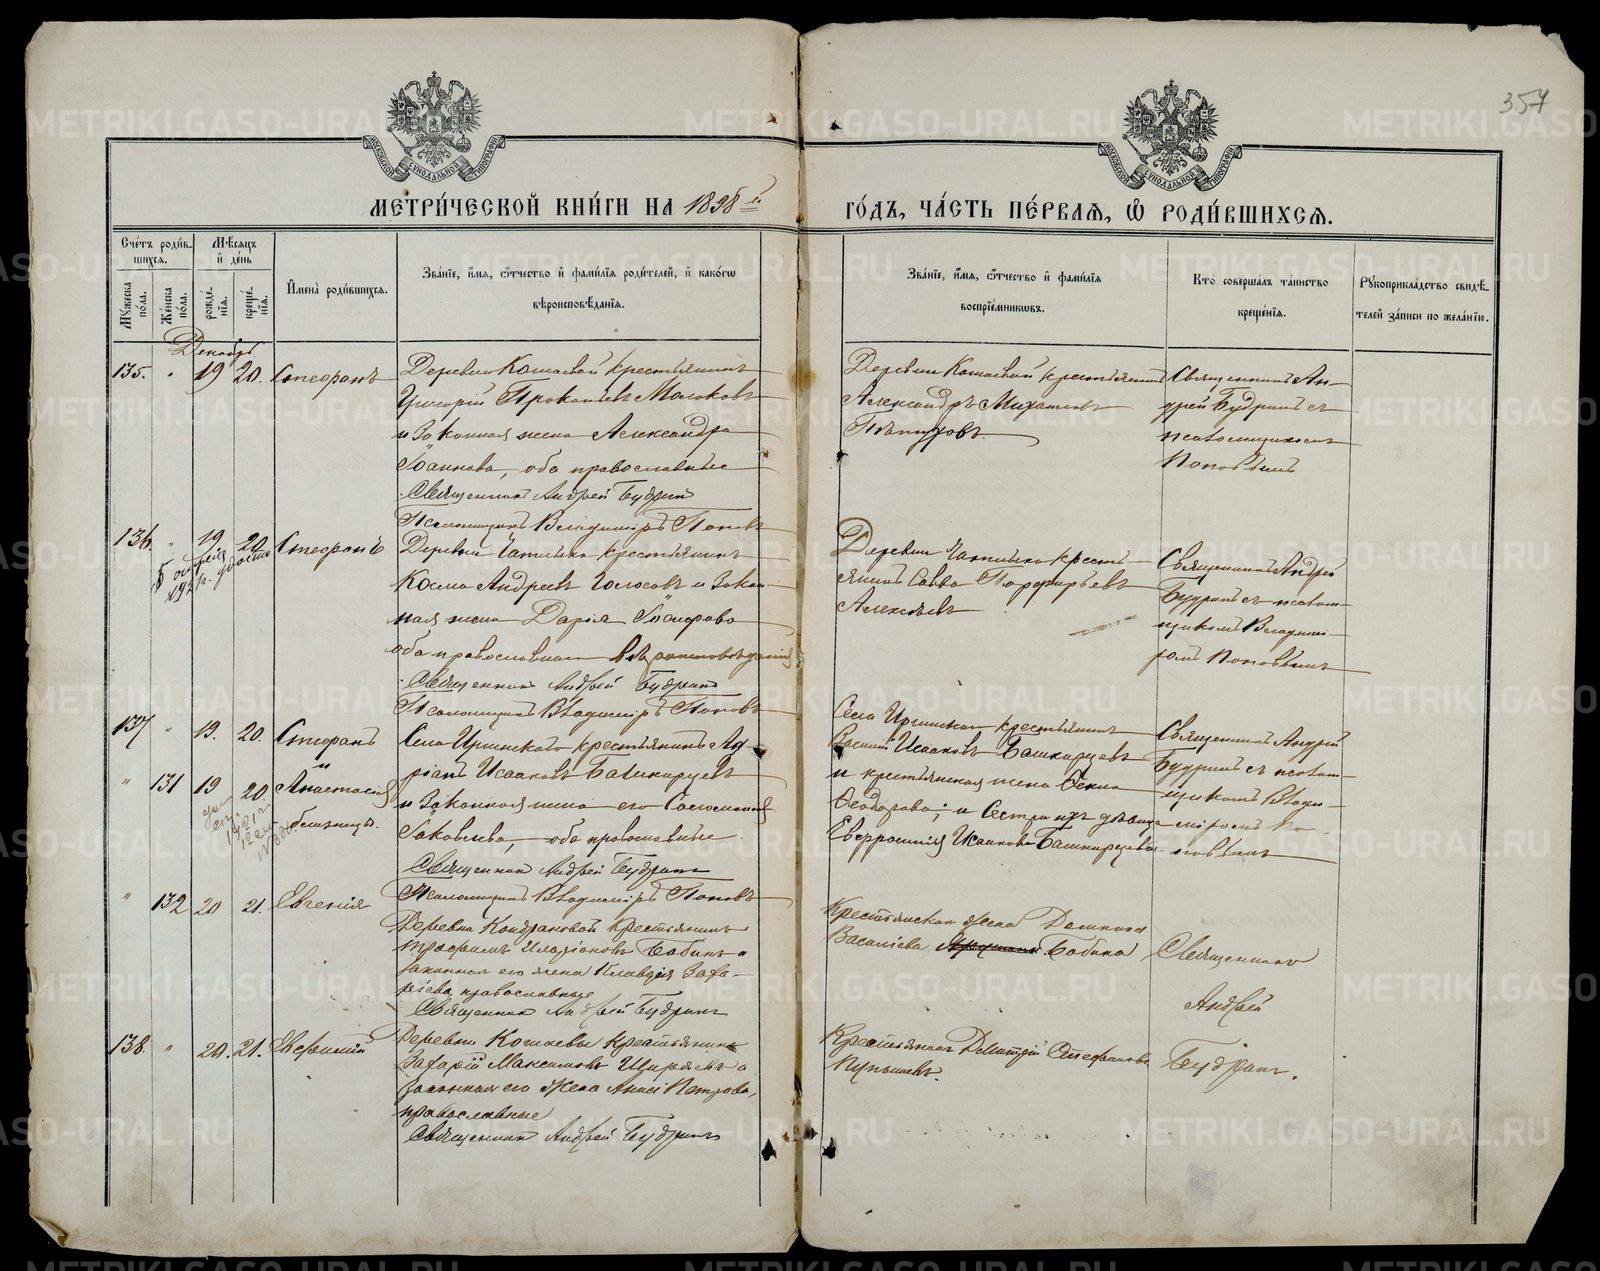 357
МЕТРИ́ЧЕСКОЙ КНИ́ГИ НА 1898 й
ГО́ДЪ, ЧА́СТЬ ПЕ́РВАЯ, Ѽ РОДИ́ВШИХСЯ.
Сче́тъ роди́в-
шихся.
Мѣсяцъ
и де́нь
Мꙋжеска по́ла.
Же́нска по́ла.
рожде́-
нїя.
креще́-
нїя.
И́мена роди́вшихся.
Зва́нїе, и́мя, ѻ́тчество и фами́лїя роди́телей, и како́гѡ
вѣроисповѣ́данїя.
Зва́нїе, и́мя, ѻ́тчество и фами́лїя
воспрїе́мникѡвъ.
Кто̀ соверша́лъ та́инство
креще́нїя.
Рꙋкоприкла́дство свидѣ́-
телей за́писи по жела́нїю.
Декабрь
135. " 19 20. Стефанъ
Деревни Кошаевой крестьянинъ
Григорій Прокопьевъ Молоковъ
и законная жена Александра
Іоаннова, оба православные
Священникъ Андрей Будринъ
Псаломщикъ Владиміръ Поповъ
Деревни Кошаевой крестьянинъ
Александръ Михайловъ
Священникъ Ан-
дрей Будринъ съ
псаломщикомъ
Поповымъ
136. " 19 20. Стефанъ
Деревни крестьянинъ
Косма Андреевъ Голосовъ и закон-
ная жена Дарія
оба православнаго вѣроисповѣданія
Священникъ Андрей Будринъ
Псаломщикъ Владиміръ Поповъ
Деревни кресть-
янинъ Савва Порфирьевъ
Алексѣевъ
Священникъ Андрей
Будринъ съ псалом-
щикомъ Владими-
ромъ Поповымъ
137 " 19. 20. Стефанъ
и
" 131 19 20. Анастасія
близнецы.
Села Иргинскаго крестьянинъ Ад-
ріанъ Исааковъ Башкирцевъ
и законная жена его Соломонія
Іаковлева, оба православные.
Священникъ Андрей Будринъ
Псаломщикъ Владиміръ Поповъ
Села Иргинскаго крестьянинъ
Василій Исааковъ Башкирцевъ
и крестьянская жена Ѳекла
Ѳеодорова; и сестра ихъ дѣвица
Евфросинія Исаакова Башкирцева.
Священникъ Андрей
Будринъ съ псалом-
щикомъ Влади-
міромъ По-
повымъ
" 132 20 21. Евгенія
Деревни Кондрановой Крестьянинъ
Трофимъ Иларіоновъ Бабинъ и
законная его жена Клавдія Заха-
ріева, православные
Священникъ Андрей Будринъ
Крестьянская жена Домника
Василіева Бабина
Священникъ
Андрей
Будринъ.
138. " 20. 21.
Деревни Кошаевой Крестьянинъ
Захарій Максимовъ и
законная его жена Анна Петрова,
православные
Священникъ Андрей Будринъ
Крестьянинъ Димитрій Стефановъ